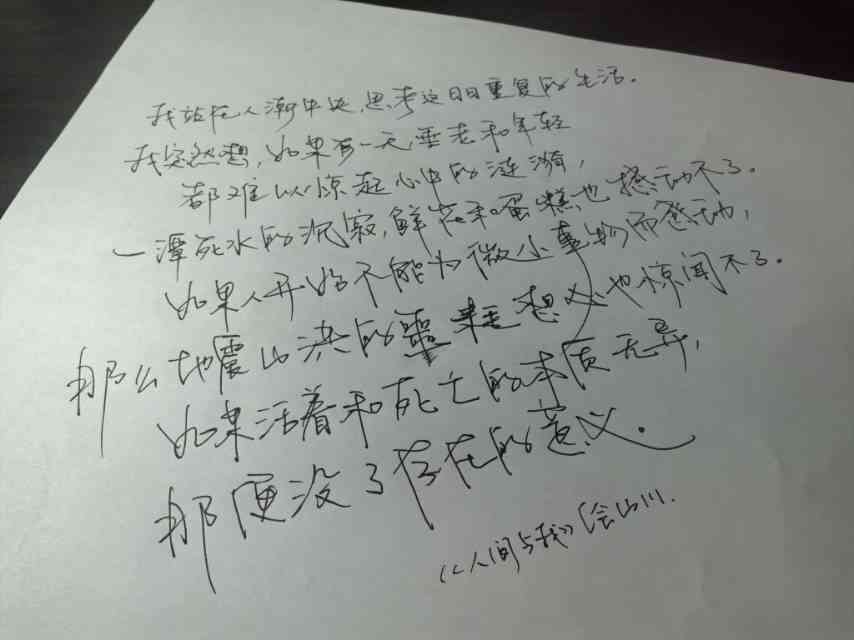 我站在人潮中央,思考这日日重复的生活。
我突然想,如果有一天,垂老和年轻
都难以惊起心中的涟漪,
一潭死水的沉寂,鲜花和蛋糕也撼动不了。
如果人开始不能为微小事物而感动,
那么地震山洪的噩耗想必也惊闻不了。
如果活着和死亡的本质无异,
那便没了存在的意义。
《人间与我》绘山川.